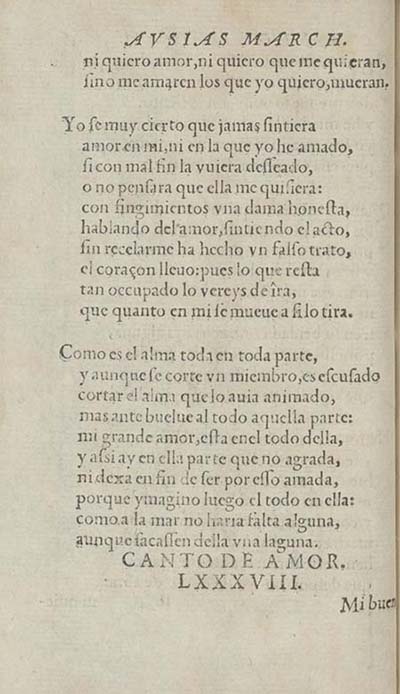 AVSIAS MARCH.
ni quiero amor, ni quiero que me quieran,
ſino me amaren los que yo quiero, mueran.
Yo ſe muy cierto que jamas ſintiera
amor en mi, ni en la que yo he amado,
ſi con mal fin la vuiera deſſeado,
o no penſara que ella me quiſiera:
con fingimientos vna dama honeſta,
hablando del amor, ſintiendo el acto,
ſin recelarme ha hecho vn falſo trato,
el coraçon lleuo: pues lo que reſta
tan occupado lo vereys de îra,
que quanto en mi ſe mueue a ſi lo tira.
Como es el alma toda en toda parte,
y aunque ſe corte vn miembro, es eſcuſado
cortar el alma que lo auia animado,
mas ante buelue al todo aquella parte:
mi grande amor, eſta enel todo della,
y aſsi ay en ella parte que no agrada,
ni dexa en fin de ſer por eſſo amada,
porque ymagino luego el todo en ella:
como a la mar no haria falta alguna,
aunque ſacaſſen della vna laguna.
CANTO DE AMOR.
LXXXVIII.
Mi buen